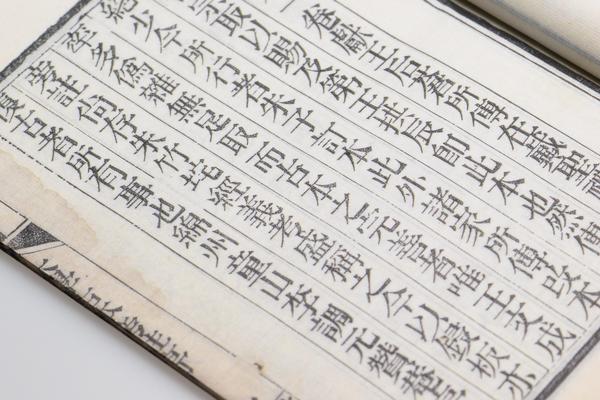 卷獻王后蒼所傳在戴聖禮
取以賜及第王拱辰即此本也然傳
絶少今所行者朱子訂本此外諸家所傳改本
率多僞雜無足取而古本之完善者唯王文成
旁註仍存朱竹垞經義考盛稱之今以鋟板亦
復古者所有事也綿州童山李調元贊菴